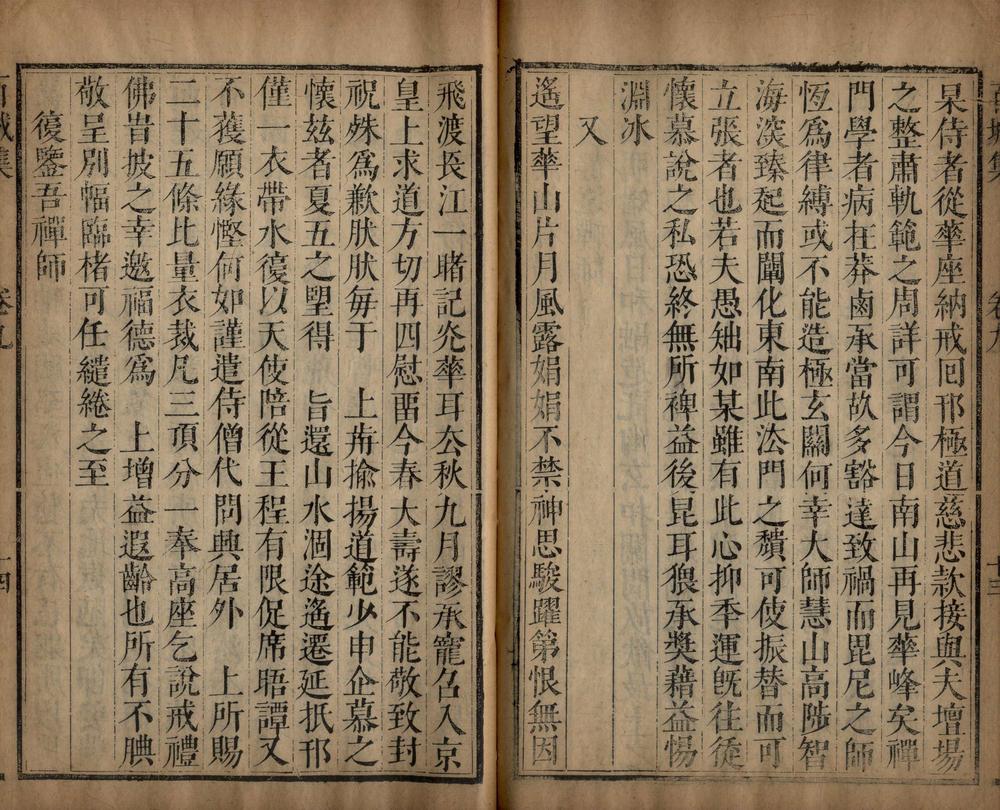 杲侍者從華座納戒回邗極道慈悲款接與夫壇場
之整肅軌範之周詳可謂今日南山再見華峰矣禪
門學者病在莽鹵承當故多豁達致禍而毘尼之師
恆為律縛或不能造極玄關何幸大師慧山高陟智
海深臻起而闡化東南此法門之積可使振替而可
立張者也若夫愚妯如某雖有此心抑季運既往徒
懷慕說之私恐終無所裨益後昆耳猥承獎藉益惕
淵冰
又
遙望華山片月風露娟娟不禁神思駿躍第恨無因
飛渡長江一睹記兊華耳去秋九月謬承寵召入京
皇上求道方切再四慰畱今春大壽遂不能敬致封
祝殊為歉肰肰每于 上前揄揚道範少申企慕之
懷茲者夏五之朢得 旨還山水涸途遙遷延抵邗
僅一衣帶水復以天使陪從王程有限促席晤譚又
不獲願緣慳何如謹遣侍僧代問興居外 上所賜
二十五條比量衣裁凡三頂分一奉高座乞說戒禮
佛昔坡之幸邀福德為 上增益遐齡也所有不腆
敬呈別幅臨楮可任繾綣之至
復鑒吾禪師
卷九
十三
十四